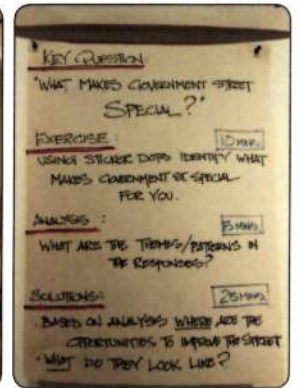 KEY QUESTION:
"WHAT MAKES GOVERNMENT STREET
SPECIAL?"
EXERCISE:
10 MINS.
USING STICKER DOTS IDENTIFY WHAT
MAKES GOVERNMENT ST SPECIAL
FOR YOU.
ANALYSIS:
15 MINS.
WHAT ARE THE THEMES/PATTERNS IN
THE RESPONSES?
SOLUTIONS:
25 MINS
. BASED ON ANALYSIS WHERE ARE THE
OPPORTUNITIES TO IMPROVE THE STREET
. WHAT DO THEY LOOK LIKE?